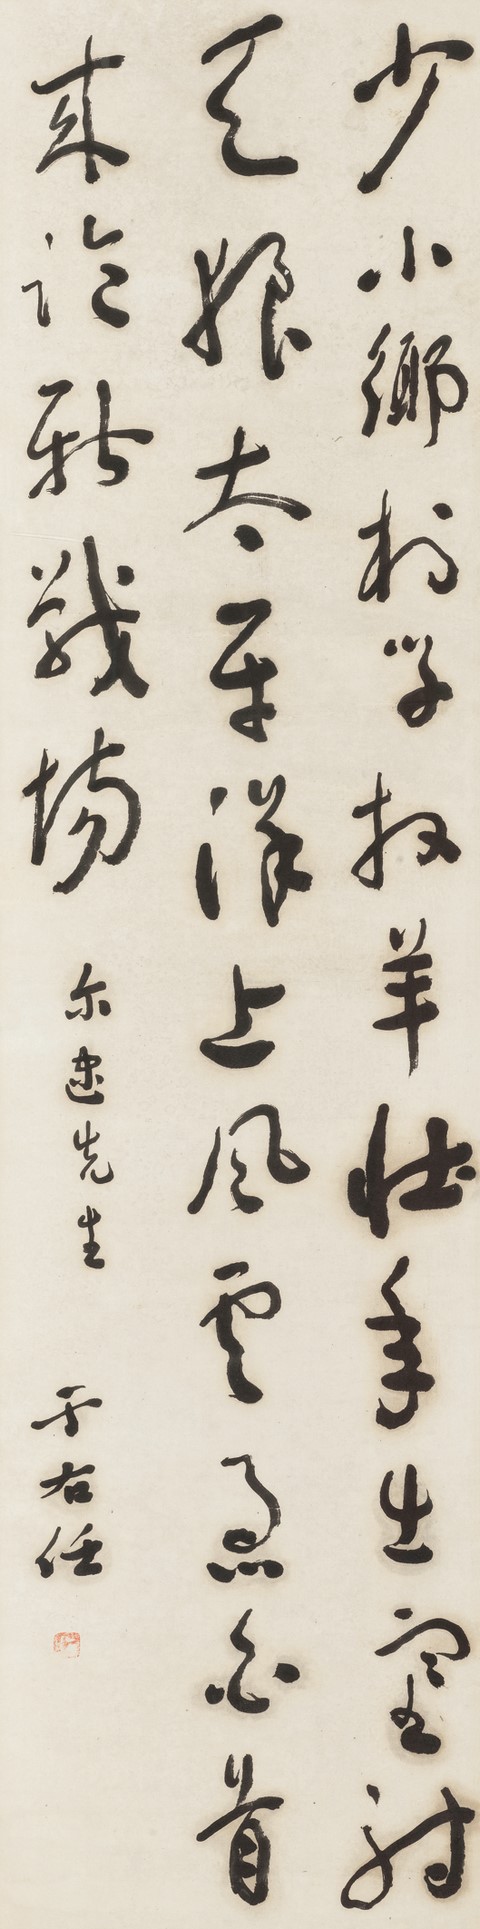 少小鄉村學牧羊壯年出塞射
天狼太平洋上風雲急白首
來論新戰場
尔速先生
于右任